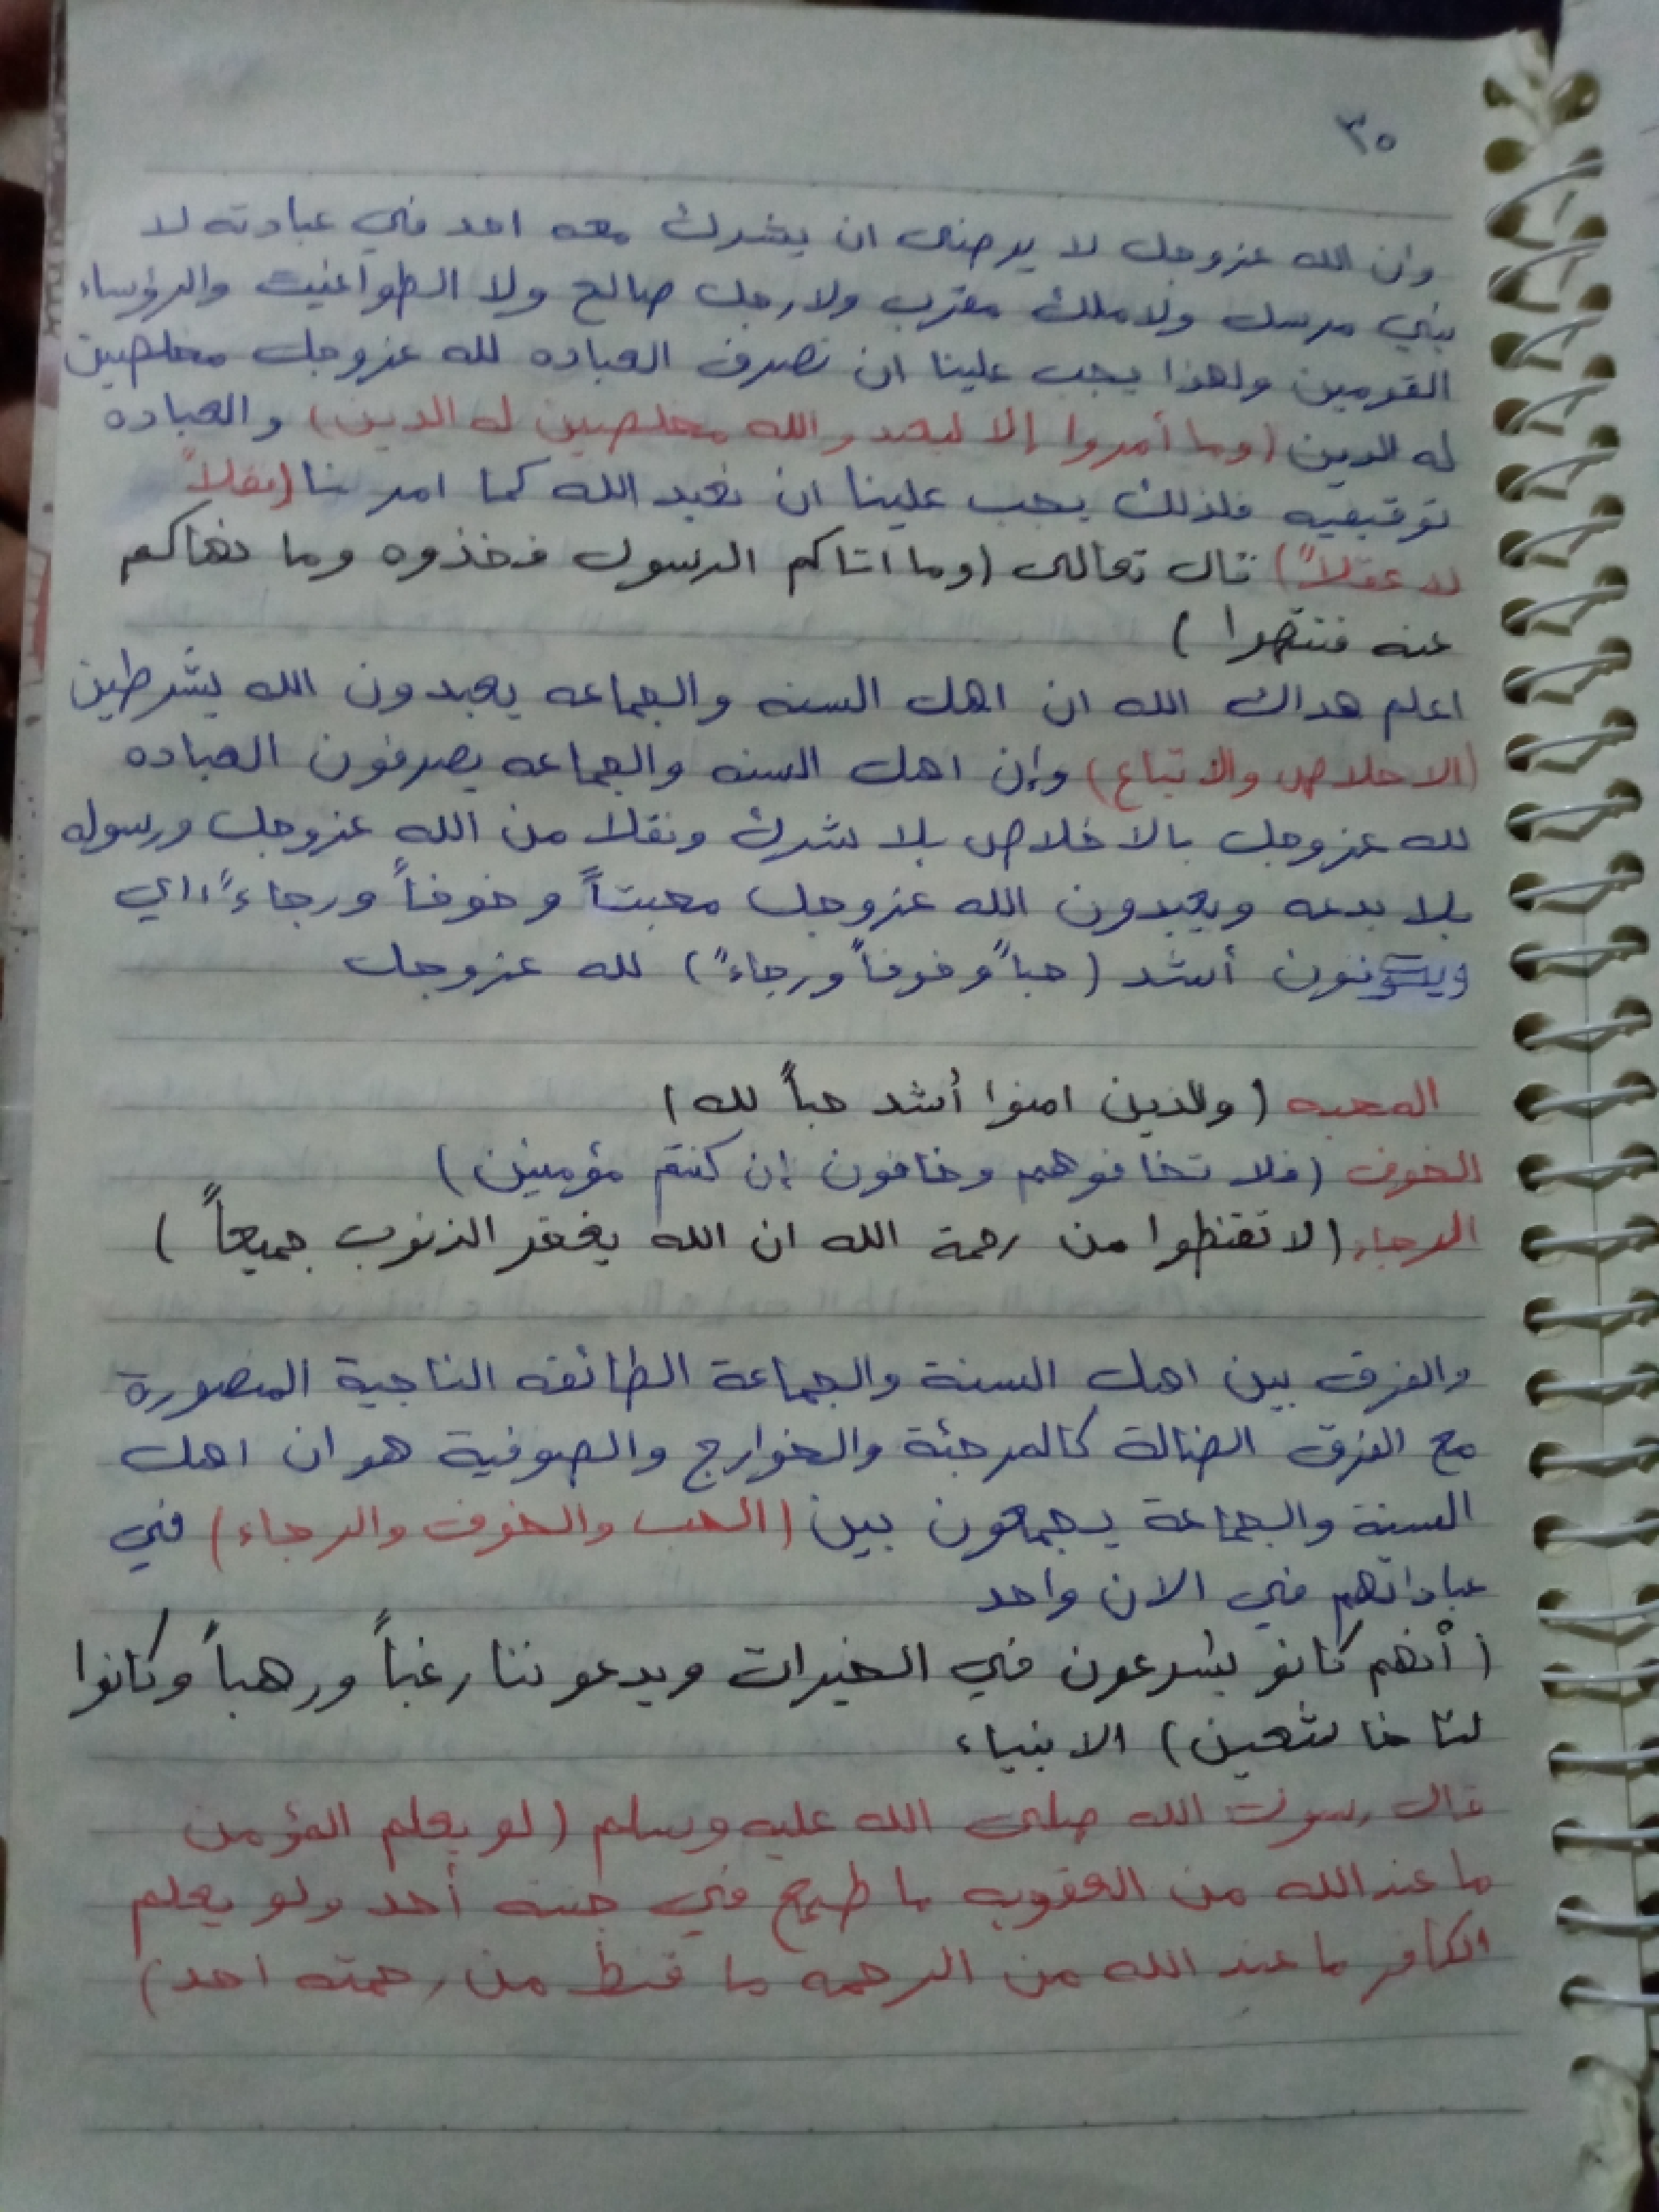 ٣٥
وان الله عزوجل لا يرضى ان يشرك معه احد في عبادته لا
نبي مرسل ولا ملك مقرب ولا رجل صالح ولا الطواغيت والرؤساء
القومين ولهذا يجب علينا ان نصرف العباده لله عزوجل مخلصين
له الدين (وما أمروا إلا ليعبدو الله مخلصين له الدين) والعباده
توقيفيه فلذلك يجب علينا ان نعبد الله كما امرنا (نقلاً
لا عقلاً) قال تعالى (وما اتاكم الرسول فخذوه وما نهاكم
عنه فنتهوا)
اعلم هداك الله ان اهل السنه والجماعه يعبدون الله بشرطين
(الاخلاص والاتباع) وإن اهل السنه والجماعه يصرفون العباده
لله عزوجل بالاخلاص بلا شرك ونقلا من الله عزوجل ورسوله
بلا بدعه ويعبدون الله عزوجل محبتاً وخوفاً ورجاءً، اي
ويكونون أشد (حباً وخوفاً ورجاءً) لله عزوجل
المحبه (والذين امنوا أشد حباً لله)
الخوف (فلا تخافوهم وخافون إن كنتم مؤمنين)
الرجاء (لا تقنطوا من رحمة الله ان الله يغفر الذنوب جميعاً)
والفرق بين اهل السنة والجماعة الطائفه الناجية المنصورة
مع الفرق الضالة كالمرجئة والخوارج والصوفية هو ان اهل
السنة والجماعة يجمعون بين (الحب والخوف والرجاء) في
عباداتهم في الان واحد
(أنهم كانو يسرعون في الخيرات ويدعوننا رغباً ورهباً وكانوا
لنا خاشعين) الانبياء
قال رسول الله صلى الله عليه وسلم (لو يعلم المؤمن
ما عند الله من العقوبه ما طمع في جنته أحد ولو يعلم
الكافر ما عند الله من الرحمه ما قنط من رحمته احد)